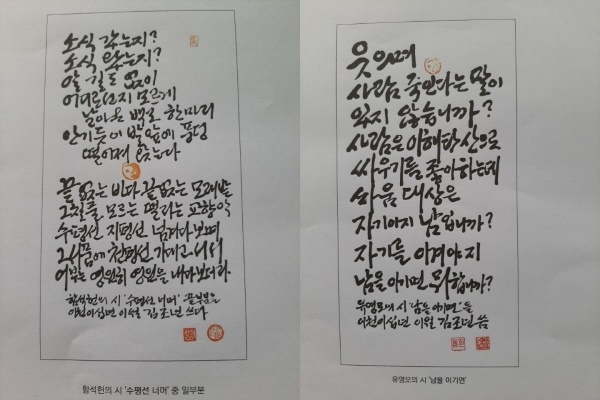 소식 갔는지?
소식 왔는지?
알 길도 없이
어디로선지 모르게
날아온 백로 한마리
안기듯이 발 앞에 풍덩
떨어져 앉는다
끝없는 바다 끝없는 모래밭
그칠 줄 모르는 떨리는 교향악
수평선 지평선 넘겨다보며
그 사품에 천평선 가지고 서서
어부는 영원히 영원을 내다보더라
함석헌의 시 '수평선 너머' 끝부분을
이천이십년 이월 김조년 쓰다
함석헌의 시 '수평선 너머' 중 일부분
웃으며
사람 죽인다는 말이
있지 않습니까?
사람은 이해타산으로
싸우기를 좋아하는데
싸움 대상은
자기이지 남입니까?
자기를 이겨야지
남을 이기면 뭐합니까?
유영모의 시 '남을 이기면'을
이천이십년 이월 김조년 씀
유영모의 시 '남을 이기면'